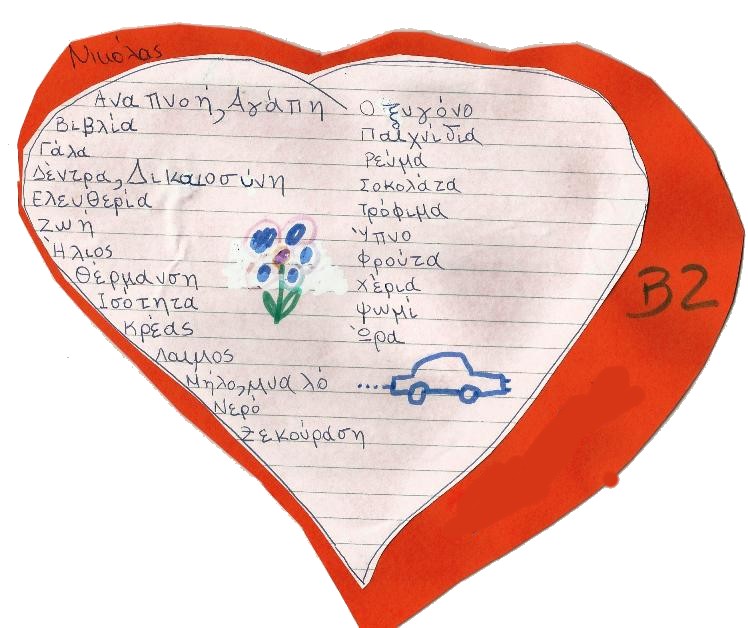 Νικόλας
Αναπνοή, Αγάπη
Βιβλία
Γάλα
Δέντρα, Δικαιοσύνη
Ελευθερία
Ζωή
Ήλιος
Θέρμανση
Ισότητα
Κρέας
Λαιμος
Μήλο, μυαλό
Νερό
Ξεκούραση
Οξυγόνο
Παιχνίδια
Ρεύμα
Σοκολάτα
Τρόφιμα
Ύπνο
Φρούτα
Χέρια
Ψωμί
Ώρα
Β2